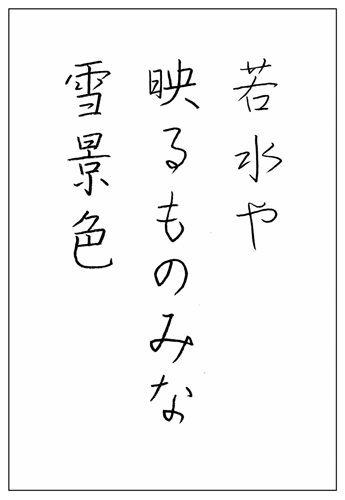 若水や
映るものみな
雪景色